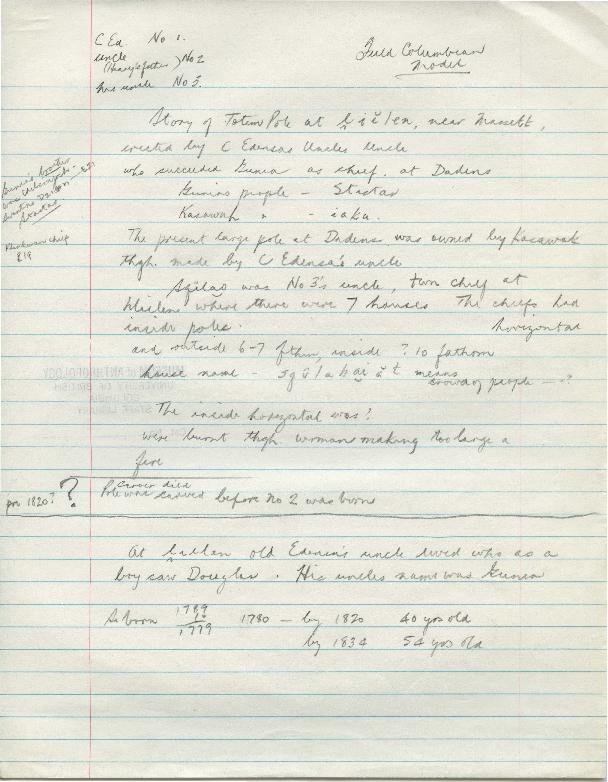 C Ed. No 1.
uncle
(Henry's father) No 2
his uncle No 3.
Field Columbian
Model
Story of Totem Pole at near Massett,
erected by C Edensas Uncles Uncle
who succeeded Gunia as chief. at Dadens
Gunias people - Stastas
Kasawak " -
The present large pole at Dadens was owned by Kasawak
thgh. made by C Edensa's uncle
was No 3's uncle, town chief at
where there were 7 houses The chiefs had
inside poles. horizontal
and outside 6-7 fthm, inside ? 10 fathom
house name - means
crowd of people - ?
The inside horizontal was ?
were burnt thgh. woman making too large a
fire
carver died
pre 1820? ? Pole was carved before No 2 was born
At old Edensa's uncle lived who as a
boy saw Douglas. His uncles name was Gunia
So born 1789
10
1779
1780 - by 1820 40 yrs old
by 1834 54 yrs old
MUSEUM of ANTHROPOLOGY
UNIVERSITY OF BRITISH
COLUMBIA